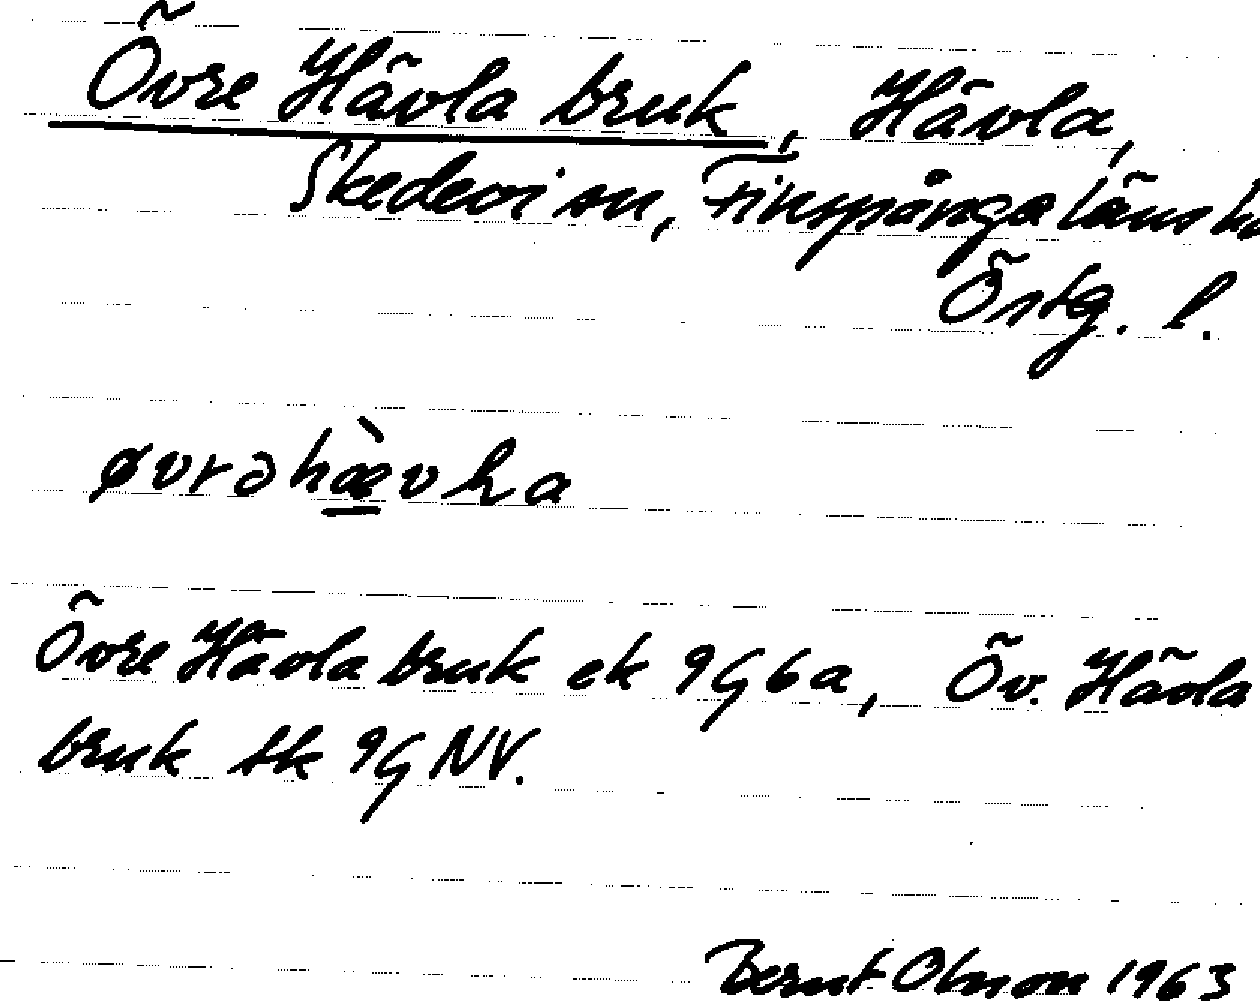 Övre Hävla bruk, Hävla,
Skedevi sn, Finspånga läns hd
Östg. l.
øvrəhæ̀vɬa
Övre Hävla bruk ek 9G6a, Öv. Hävla
bruk tk 9G NV.
Bernt Olsson 1963